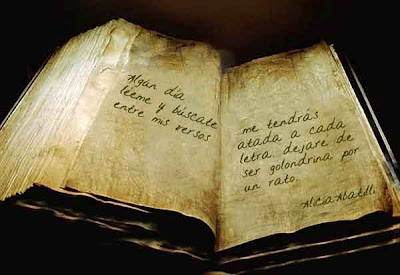 Algún día
léeme y búscate
entre mis versos
me tendrás
atada a cada
letra. dejare de
ser golondrina por
un rato.
Alicia Abatilli